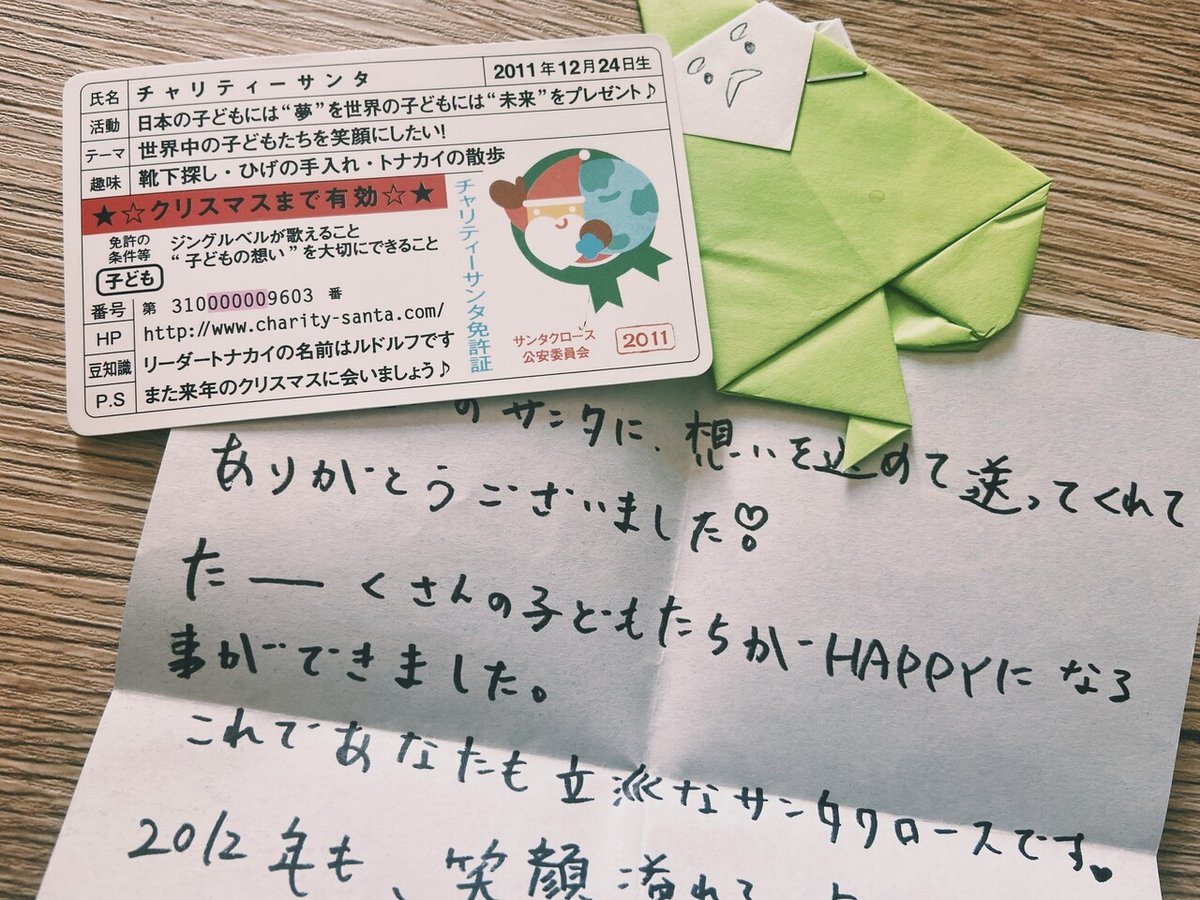 氏名 チャリティーサンタ 2011年12月24日生
活動 日本の子どもには“夢”を世界の子どもには“未来”をプレゼント♪
テーマ 世界中の子どもたちを笑顔にしたい!
趣味 靴下探し・ひげの手入れ・トナカイの散歩
★☆クリスマスまで有効☆★
免許の条件等 ジングルベルが歌えること
“子どもの想い”を大切にできること
子ども
番号 第 310000009603 番
HP http://www.charity-santa.com/
豆知識 リーダートナカイの名前はルドルフです
P.S また来年のクリスマスに会いましょう♪
チャリティーサンタ免許証
サンタクロース
公安委員会
2011
のサンタに、想いを込めて送ってくれて
ありがとうございました
たーくさんの子どもたちがHAPPYになる
事ができました。
これであなたも立派なサンタクロースです。
2012年も、笑顔溢れる